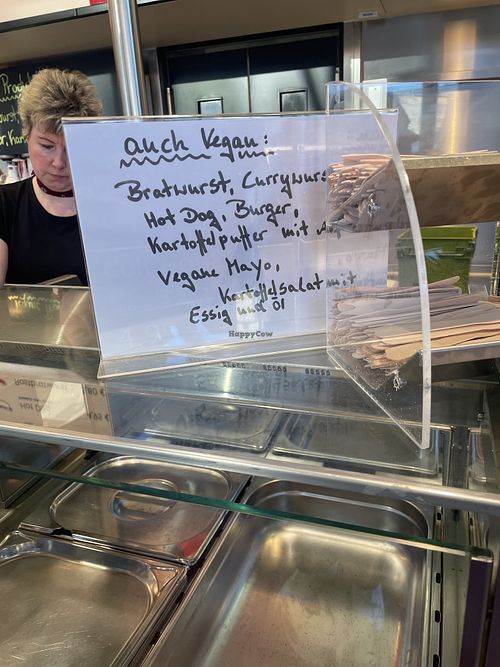 auch Vegan:
Bratwurst, Currywurs
Hot Dog, Burger,
Kartoffelpuffer mit
Vegane Mayo,
Kartoffelsalat mit
Essig und Öl
HappyCow
Hot Dog